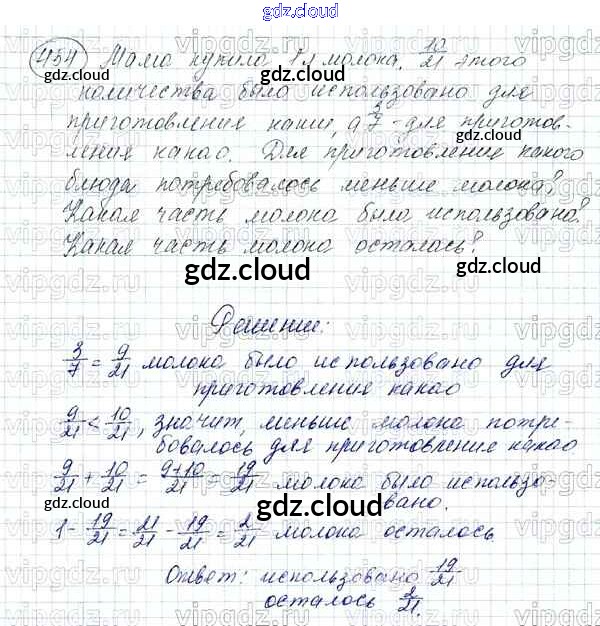 gdz.cloud
454 Мама купила 1 л молока. 10/21 этого
количества было использовано для
приготовления каши, а 3/7 - для приготов-
ления какао. Для приготовление какого
блюда потребовалось меньше молока?
Какая часть молока была использована?
Какая часть молока осталась?
gdz.cloud
Решение:
3/7 = 9/21 молока было использовано для
приготовления какао
9/21 < 10/21, значит, меньше молока потре-
бовалось для приготовление какао
9/21 + 10/21 = 9+10/21 = 19/21 молока было использо-
вано.
1 - 19/21 = 21/21 - 19/21 = 2/21 молока осталось
Ответ: использовано 19/21
осталось 2/21.
gdz.cloud